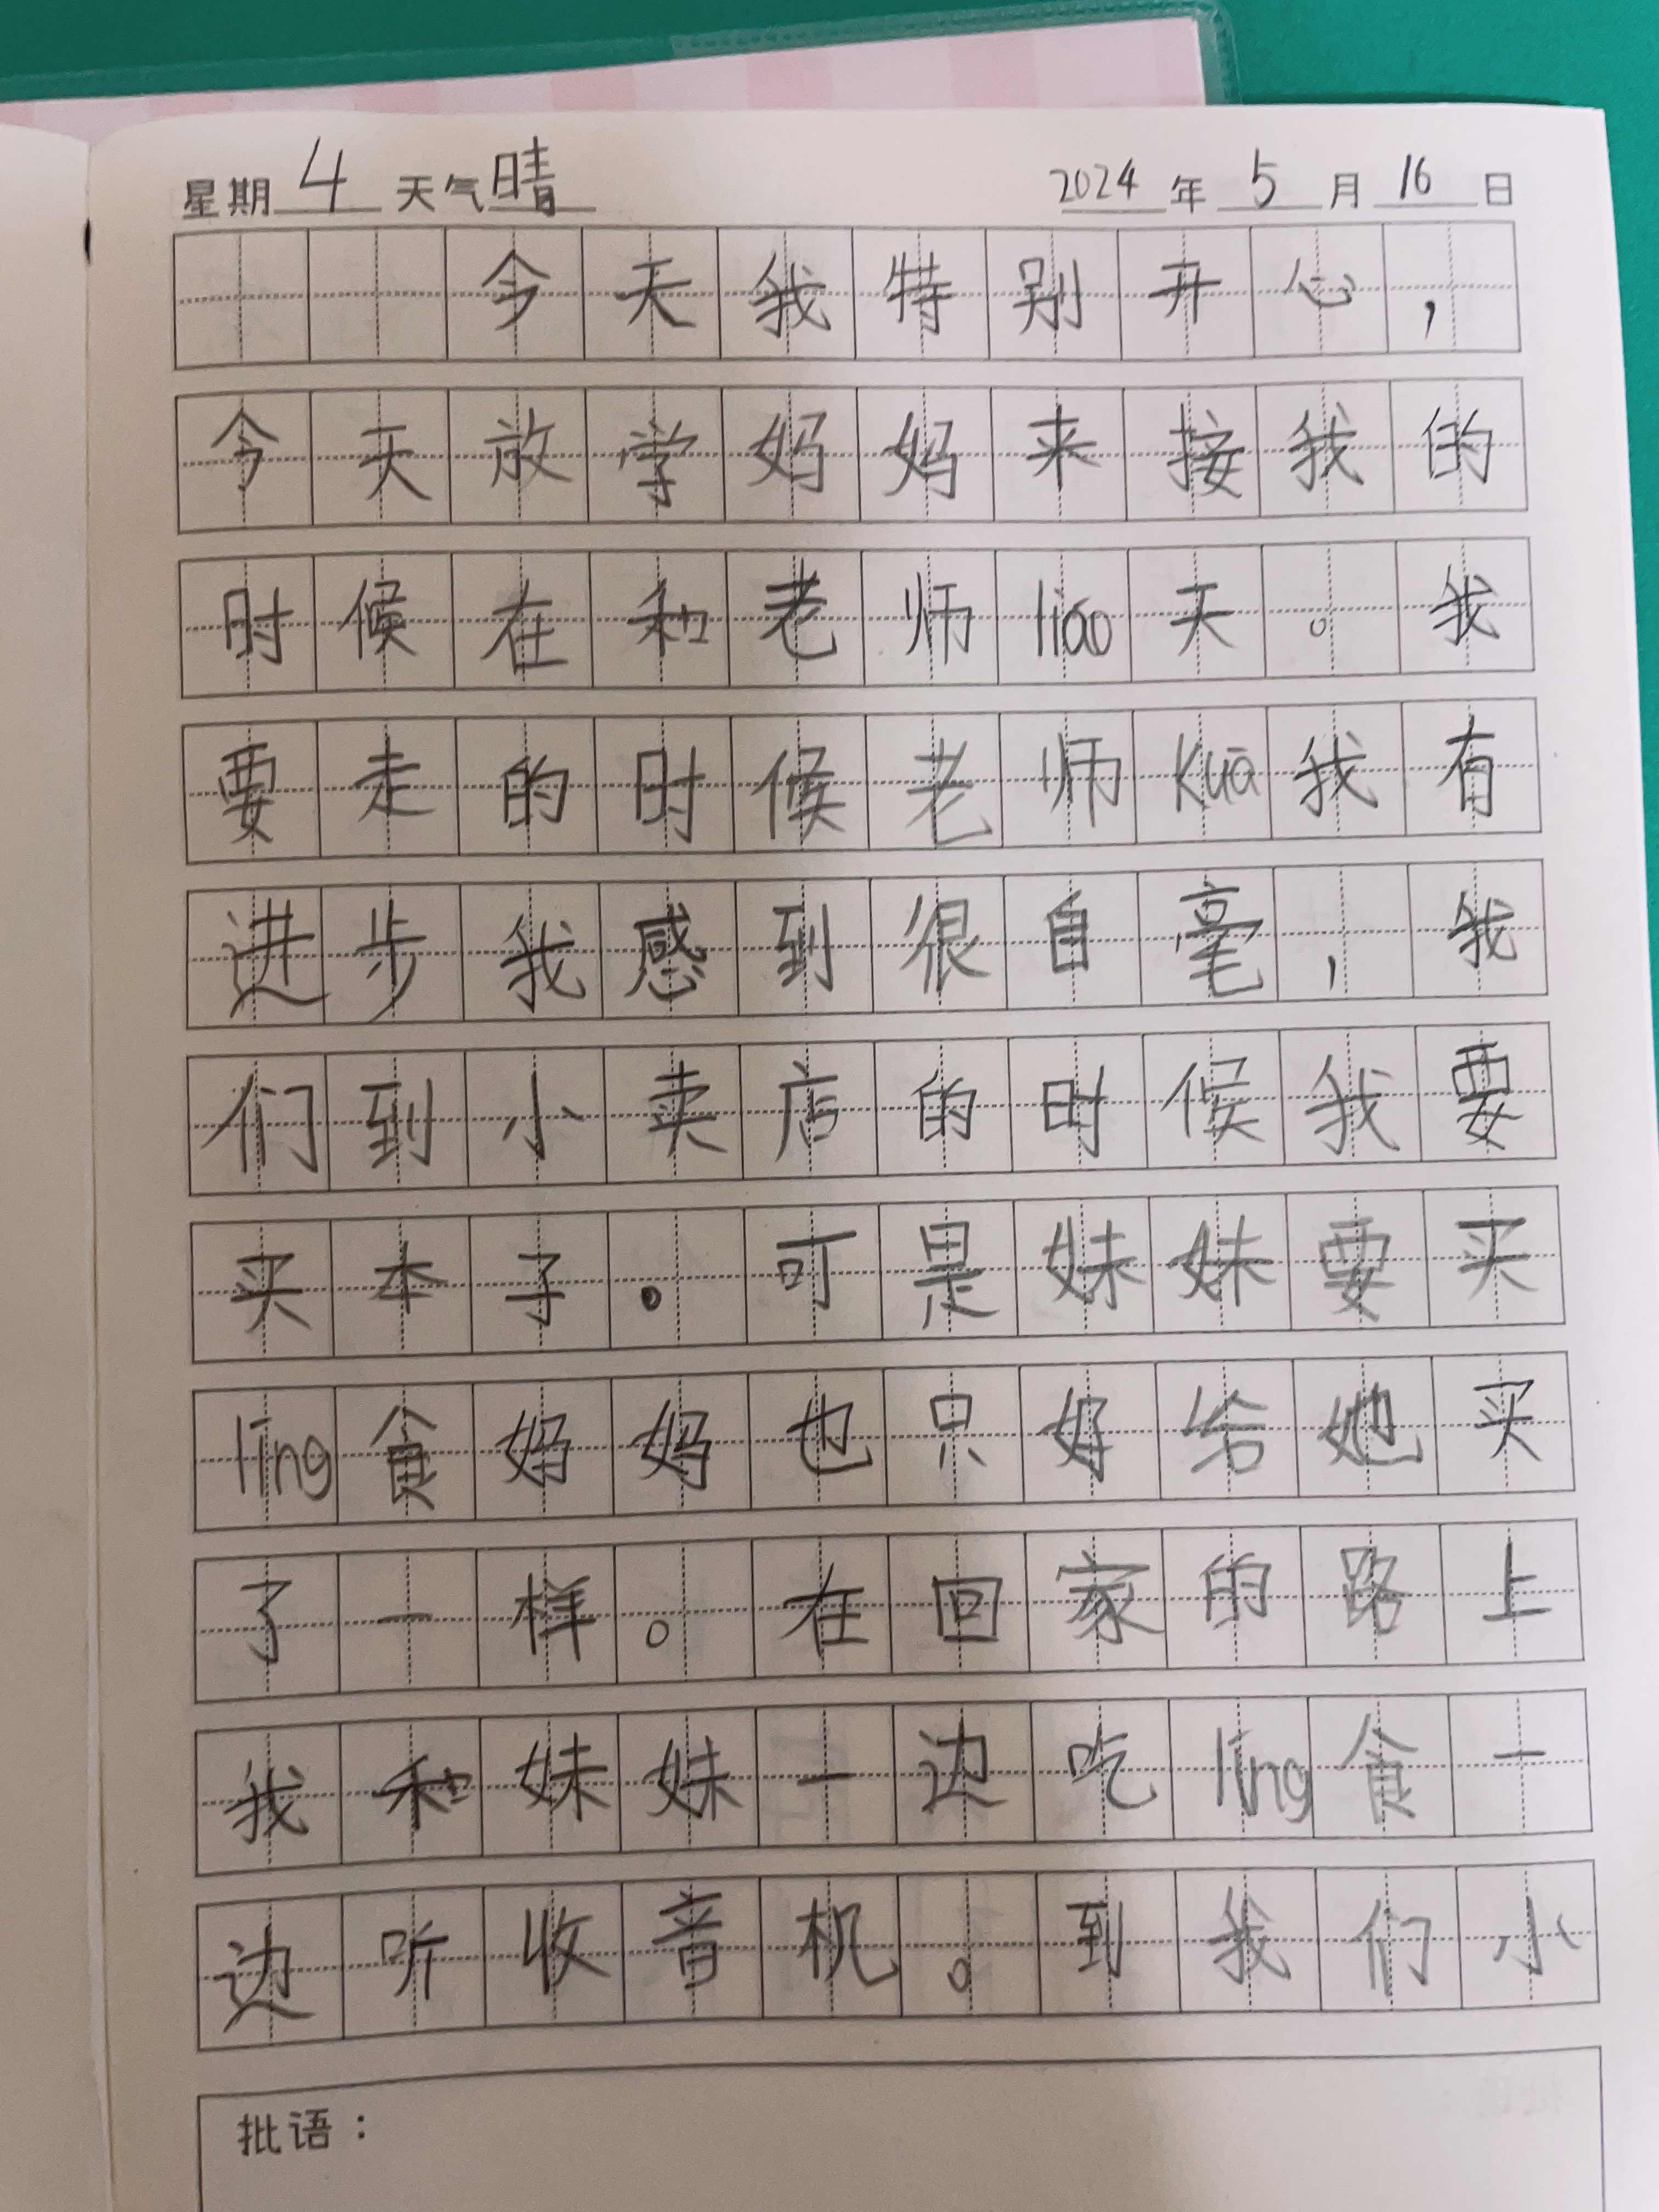 星期 4 天气 晴 2024 年 5 月 16 日
今天我特别开心，
今天放学妈妈来接我的
时候在和老师liáo天。我
要走的时候老师kuā我有
进步我感到很自毫，我
们到小卖店的时候我要
买本子。可是妹妹要买
líng食妈妈也只好给她买
了一样。在回家的路上
我和妹妹一边吃líng食一
边听收音机。到我们小
批语：